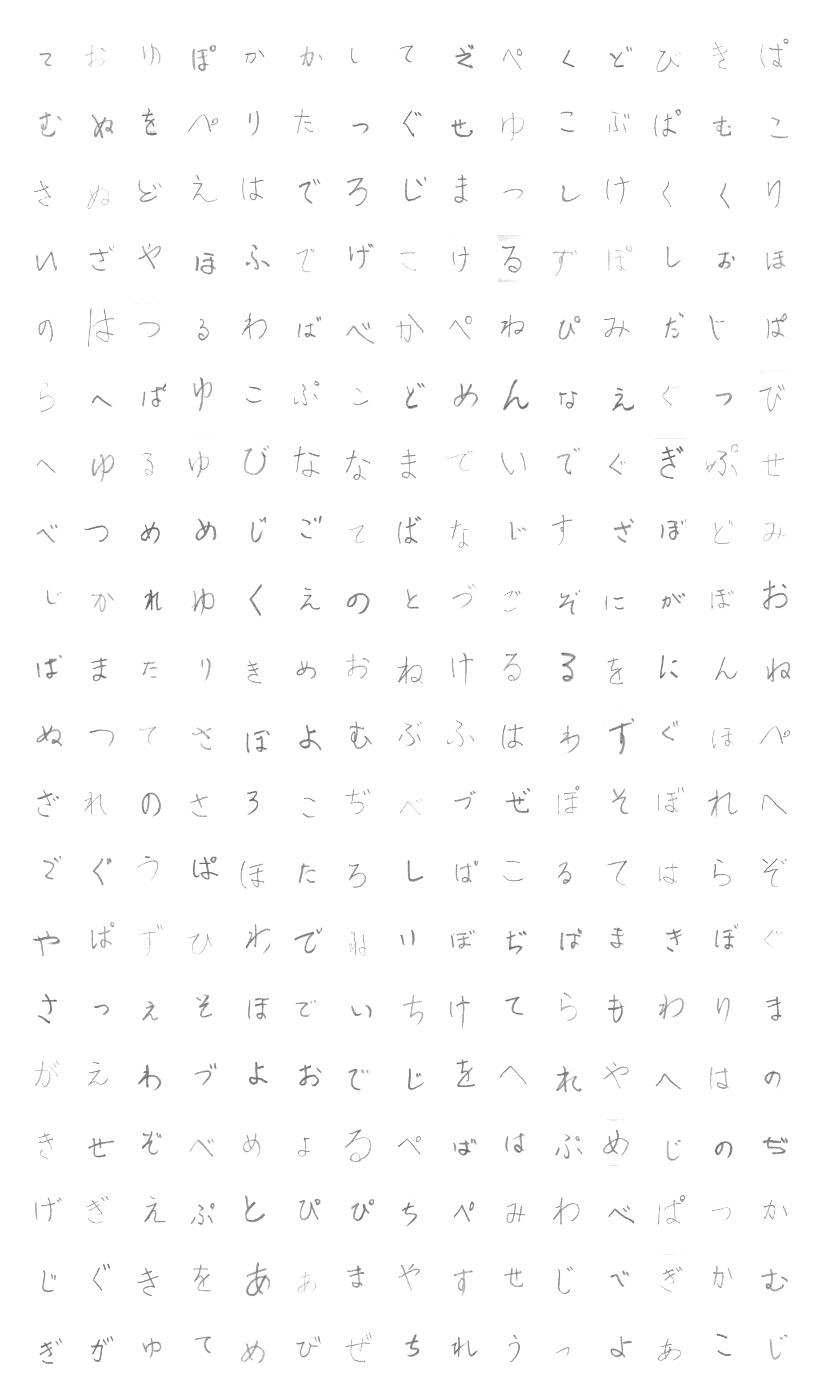 ておゆぽかかしてざぺくどびきぱ
むぬをぺりたっぐせゆこぶぱむこ
さぬどえはでろじまっしけくくり
いざやほふでげこけるずぽしおほ
のはつるわばべかぺねぴみだじぱ
らへばゆこぷこどめんなえぐっび
へゆるゆびななまでいでぐぎぷせ
べつめめじごてばなじすざぼどみ
じかれゆくえのとづごぞにがぼお
ばまたりきめおねけるるをにんね
ぬつてさぼよむぶふはわずぐほぺ
ざれのさろこぢべづぜぽそぼれへ
でぐうぱほたろしぱこるてはらぞ
やぱずひわでねいぼぢばまきぼぐ
さっえそほでいちけてらもわりま
がえわづよおでじをへれやへはの
きせぞべめよるぺばはぷめじのぢ
げぎえぷとぴぴちぺみわべぱっか
じぐきをあぁまやすせじべぎかむ
ぎがゅてめびぜちれうっよあこじ